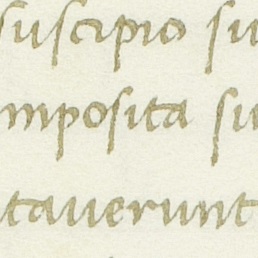 suscipio su
mposita su
tauerunt